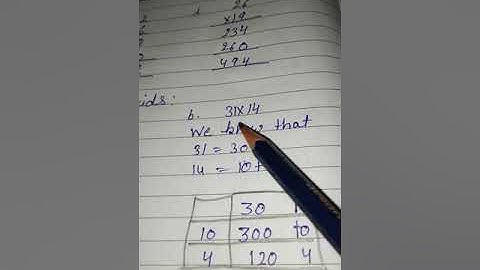 26
×19
234
260
494
ids:
b. 31×14
We know that
31 = 30
14 = 10+
30 1
10 300 10
4 120 4